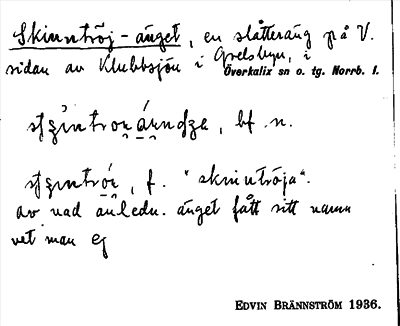 Skinntröj-änget, en slåtteräng på V.
sidan av Klubbsjön i Grelsbyn, i
Överkalix sn o. tg. Norrb. l.
bf. n.
f. "skinntröja".
av vad anledn. änget fått sitt namn
vet man ej
EDVIN BRÄNNSTRÖM 1936.